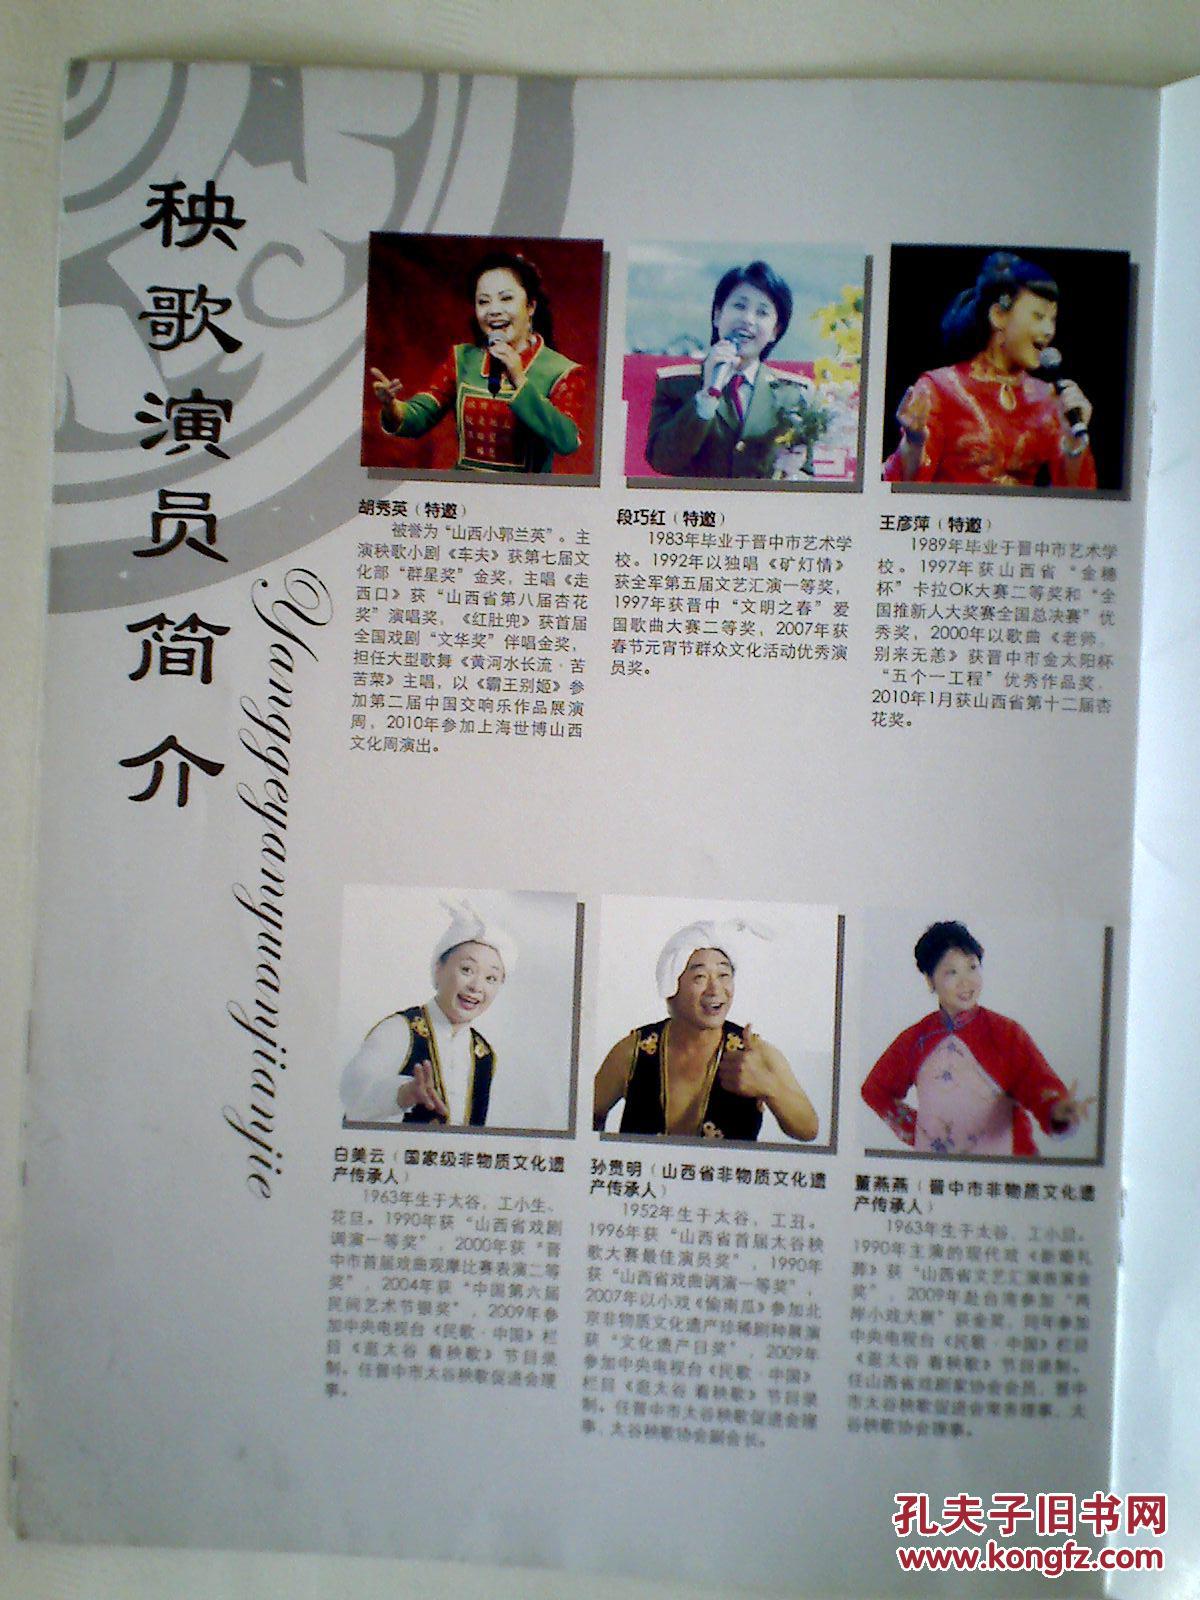 秧歌演员简介
Yanggeyanyuanjianjie
胡秀英（特邀）
被誉为“山西小郭兰英”。主
演秧歌小剧《车夫》获第七届文
化部“群星奖”金奖，主唱《走
西口》获“山西省第八届杏花
奖”演唱奖，《红肚兜》获首届
全国戏剧“文华奖”伴唱金奖，
担任大型歌舞《黄河水长流·苦
苦菜》主唱，以《霸王别姬》参
加第二届中国交响乐作品展演
周，2010年参加上海世博山西
文化周演出。
段巧红（特邀）
1983年毕业于晋中市艺术学
校。1992年以独唱《矿灯情》
获全军第五届文艺汇演一等奖，
1997年获晋中“文明之春”爱
国歌曲大赛二等奖，2007年获
春节元宵节群众文化活动优秀演
员奖。
王彦萍（特邀）
1989年毕业于晋中市艺术学
校。1997年获山西省“金穗
杯”卡拉OK大赛二等奖和“全
国推新人大奖赛全国总决赛”优
秀奖，2000年以歌曲《老师，
别来无恙》获晋中市金太阳杯
“五个一工程”优秀作品奖，
2010年1月获山西省第十二届杏
花奖。
白美云（国家级非物质文化遗
产传承人）
1963年生于太谷，工小生、
花旦。1990年获“山西省戏剧
调演一等奖”，2000年获“晋
中市首届戏曲观摩比赛表演二等
奖”，2004年获“中国第六届
民间艺术节银奖”，2009年参
加中央电视台《民歌·中国》栏
目《逛太谷 看秧歌》节目录
制。任晋中市太谷秧歌促进会理
事。
孙贵明（山西省非物质文化遗
产传承人）
1952年生于太谷，工丑。
1996年获“山西省首届太谷秧
歌大赛最佳演员奖”，1990年
获“山西省戏曲调演一等奖”，
2007年以小戏《偷南瓜》参加北
京非物质文化遗产珍稀剧种展演
获“文化遗产日奖”，2009年
参加中央电视台《民歌·中国》
栏目《逛太谷 看秧歌》节目录
制。任晋中市太谷秧歌促进会理
事、太谷秧歌协会副会长。
董燕燕（晋中市非物质文化遗
产传承人）
1963年生于太谷，工小旦。
1990年主演的现代戏《新婚礼
葬》获“山西省文艺汇演表演金
奖”，2009年赴台湾参加“两
岸小戏大展”获金奖，同年参加
中央电视台《民歌·中国》栏目
《逛太谷 看秧歌》节目录制。
任山西省戏剧家协会会员，晋中
市太谷秧歌促进会常务理事、太
谷秧歌协会理事。
孔夫子旧书网
www.kongfz.com